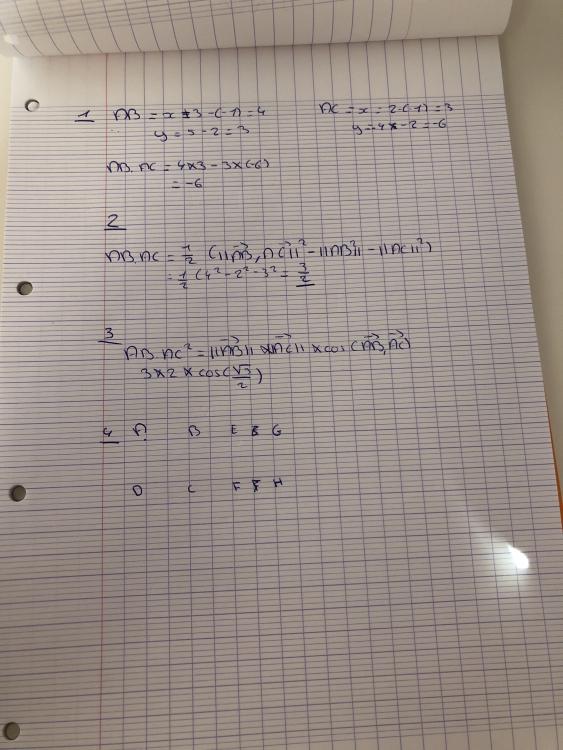 1 AB = x 3-(-1) = 4 AC = x = 2-(-1) = 3
y = 5-2 = 3 y = -4-2 = -6
AB.AC = 4×3 - 3×(-6)
= -6
2
AB.AC = 1/2 (||AB, AC||² - ||AB²|| - ||AC||²)
= 1/2 (4² - 2² - 3² = 3/2
3
AB.AC² = ||AB|| × AC|| × cos(AB, AC)
3×2×cos(√3/2)
4 A B E G
D C F H